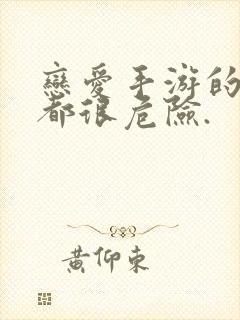 戀愛手游的
都很危險.
黃仰東